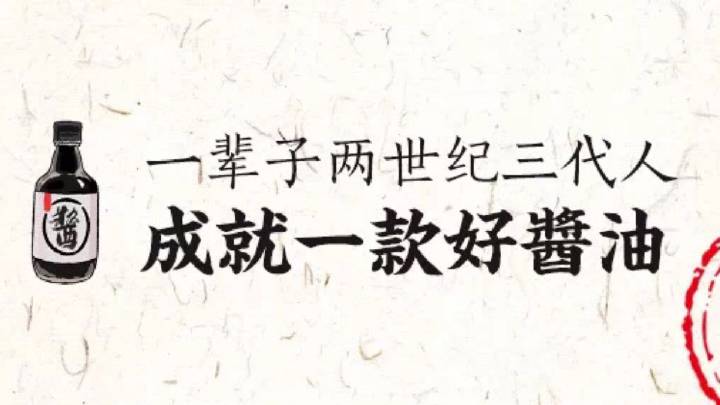 醬
一辈子两世纪三代人
成就一款好醬油